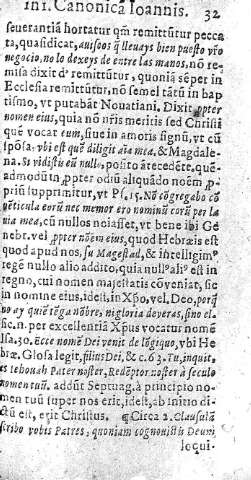 in I. Canonicā Ioannis. 32
seuerantiā hortatur qm̄ remittūtur pecca
ta, quasi dicat, auisoos q̄ lleuays bien puesto vr̄o
negocio, no lo dexeys de entre las manos, nō re-
missa dixit d' remittūtur, quoniā sēper in
Ecclesia remittūtur, nō semel tātū in bap
tismo, vt putabāt Nouatiani. Dixit ꝓpter
nomen eius, quia nō nr̄is meritis sed Christi
que vocat eum, siue in amoris signū, vt cū
spōsa: vbi est quē diligit aīa mea, & Magdale-
na. Si vidistis eū null⁹, posito ātecedēte, quē-
admodū in ꝓpter odiū aliquādo noēm ꝓ-
priū supprimitur, vt Ps. 15. Nō cōgregabo cō
vēticula eorū nec memor ero nominū corū per la
uia mea, cū nullos noiasset, vt bene ibi Ge
nebr. vel ꝓpter nōem eius, quod Hebræis est
quod apud nos, su Magestad, & intelligim⁹
regē nullo alio addito, quia null⁹ ali⁹ est in
regno, cui nomen maiestatis cōueniat, sic
in nomine eius, idest, in Xp̄o, vel, Deo, porq̄
no ay quiē tēga nōbre, ni gloria deueras, sino el
sic. n. per excellentiā Xp̄us vocatur nomē
Isa. 30. Ecce nomē Dei venit de lōgiquo, vbi He
bræ. Glosa legit, filius Dei, & c. 63. Tu, inquit,
es Iehouah Pater noster, Redēptor noster à seculo
nomen tuū. addūt Septuag. à principio no-
men tuū super nos erit, idest, ab initio di-
ctū est, erit Christus. ¶ Circa 2. Clausulā
scribo vobis Patres, quoniam cognouistis Deum
loqui-